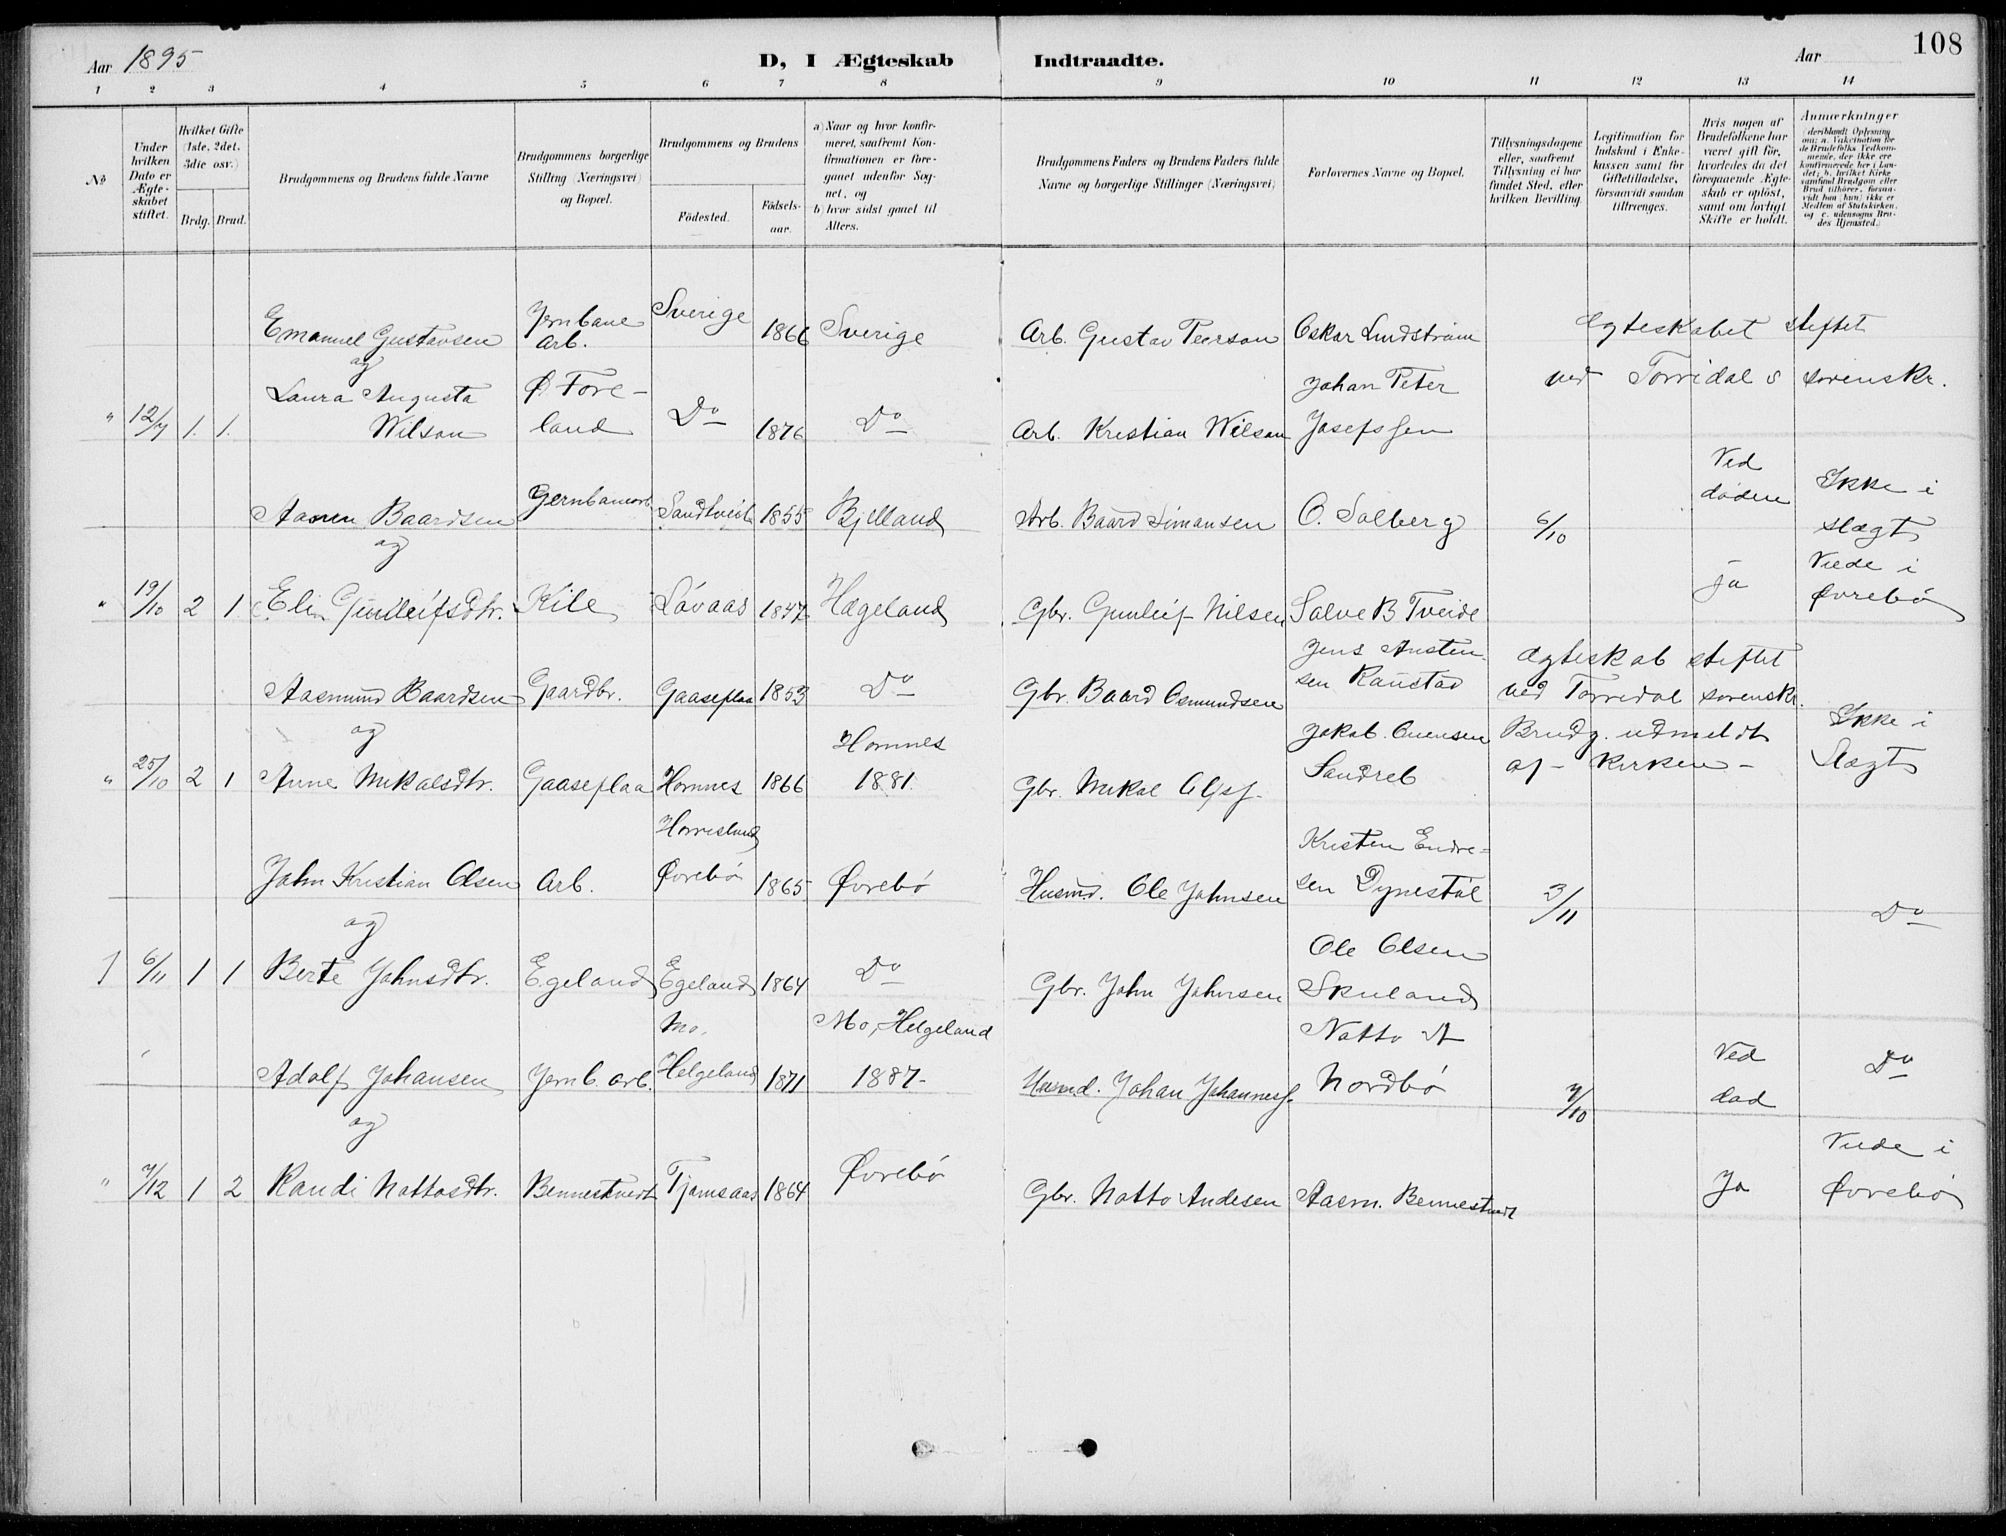 Aar 1895
D, I Ægteskab Indtraadte.
Aar
108
1 2 3 4 5 6 7 8 9 10 11 12 13 14
No
Under hvilken Dato er Ægteskabet stiftet.
Hvilket Gifte (1ste, 2det, 3die osv.)
Brdg. Brud.
Brudgommens og Brudens fulde Navne
Brudgommens borgerlige Stilling (Næringsvei) og Bopæl.
Brudgommens og Brudens
Födested.
Födsels-aar.
a) Naar og hvor konfirmeret, saafremt Konfirmationen er foregaaet udenfor Sognet, og
b) hvor sidst gaaet til Alters.
Brudgommens Faders og Brudens Faders fulde Navne og borgerlige Stillinger (Næringsvei)
Forlovernes Navne og Bopæl.
Tillysningsdagene eller, saafremt Tillysning ei har fundet Sted, efter hvilken Bevilling.
Legitimation for Indskud i Enkekassen samt for Giftetilladelse, forsaavidt saadan tiltrænges.
Hvis nogen af Brudefolkene har været gift för, hvorledes da det foregaaende Ægteskab er oplöst, samt om lovligt Skifte er holdt.
Anmærkninger (deriblandt Oplysning om: a. Vakcination for de Brudefolks Vedkommende, der ikke ere konfirmerede her i Landet; b. hvilket Kirkesamfund Brudgom eller Brud tilhører, forsaavidt han (hun) ikke er Medlem af Statskirken, og c. udensogns Brudes Hjemsted.)
Emanuel Gustavsen Jernbane Arb. Sverige 1866 Sverige Arb. Gustav Peerson Oskar Lindstrøm Egteskabet stiftet
og
Laura Augusta Ø. Fore- Johan Peter ved Torridal s sorenskr.
" 12/7 1. 1. Wilson land Do 1876 Do Arb. Kristian Wilson Josefssen
Ved
Aanen Baardsen Jernbanearb. Sandtveit 1855 Bjelland Arb. Baard Simonsen O. Solberg 6/10 døden Ikke i slægt
og Viede i
" 19/10 2 1 Eli Gunleifsdtr. Kile Løvaas 1847 Hægeland Gbr. Gunleif Nilsen Salve B Tveide ja Øvrebø
Jens Austen- Ægteskab stiftet
Aasmund Baardsen Gaardbr. Gaaseflaa 1853 Do Gbr. Baard Osmundsen sen Raustad ved Torridal sorenskr.
og Hornnes Jakob Brudg. udmeldt Ikke i
" 25/10 2 1 Anne Mikalsdtr. Gaaseflaa Hornnes 1866 1881. Gbr. Mikal Olss. af kirken Slægt
Kristen Endre-
John Kristian Olsen Arb. Øvrebø 1865 Øvrebø Husmd. Ole Johnsen sen Dynestøl 3/11 Do
og Ole Olsen
1 6/11 1 1 Berte Johnsdtr. Egeland Egeland 1864 Do Gbr. John Johnsen Skuland
Mo, Mo, Helgeland Notto A Ved
Adolf Johansen Jernb. arb. Helgeland 1871 1887 Husmd. Johan Johanness. Nordbø 7/10 død Do
og Viede i
" 7/12 1 2 Randi Nottosdtr. Bennestvedt Tjomsaas 1864 Øvrebø Gbr. Notto Andesen Aasm. Bennestvedt Ja Øvrebø